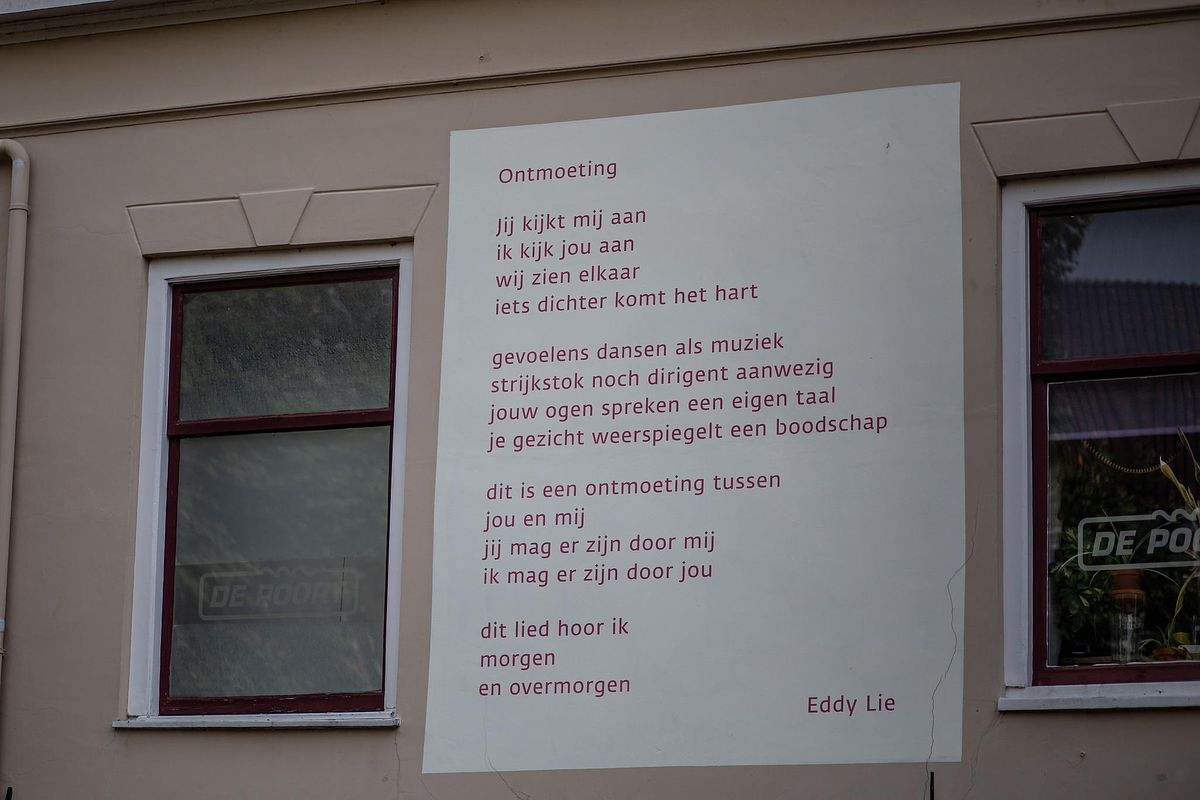 Ontmoeting
Jij kijkt mij aan
ik kijk jou aan
wij zien elkaar
iets dichter komt het hart
gevoelens dansen als muziek
strijkstok noch dirigent aanwezig
jouw ogen spreken een eigen taal
je gezicht weerspiegelt een boodschap
dit is een ontmoeting tussen
jou en mij
jij mag er zijn door mij
ik mag er zijn door jou
dit lied hoor ik
morgen
en overmorgen
Eddy Lie
DE POORT
DE POO